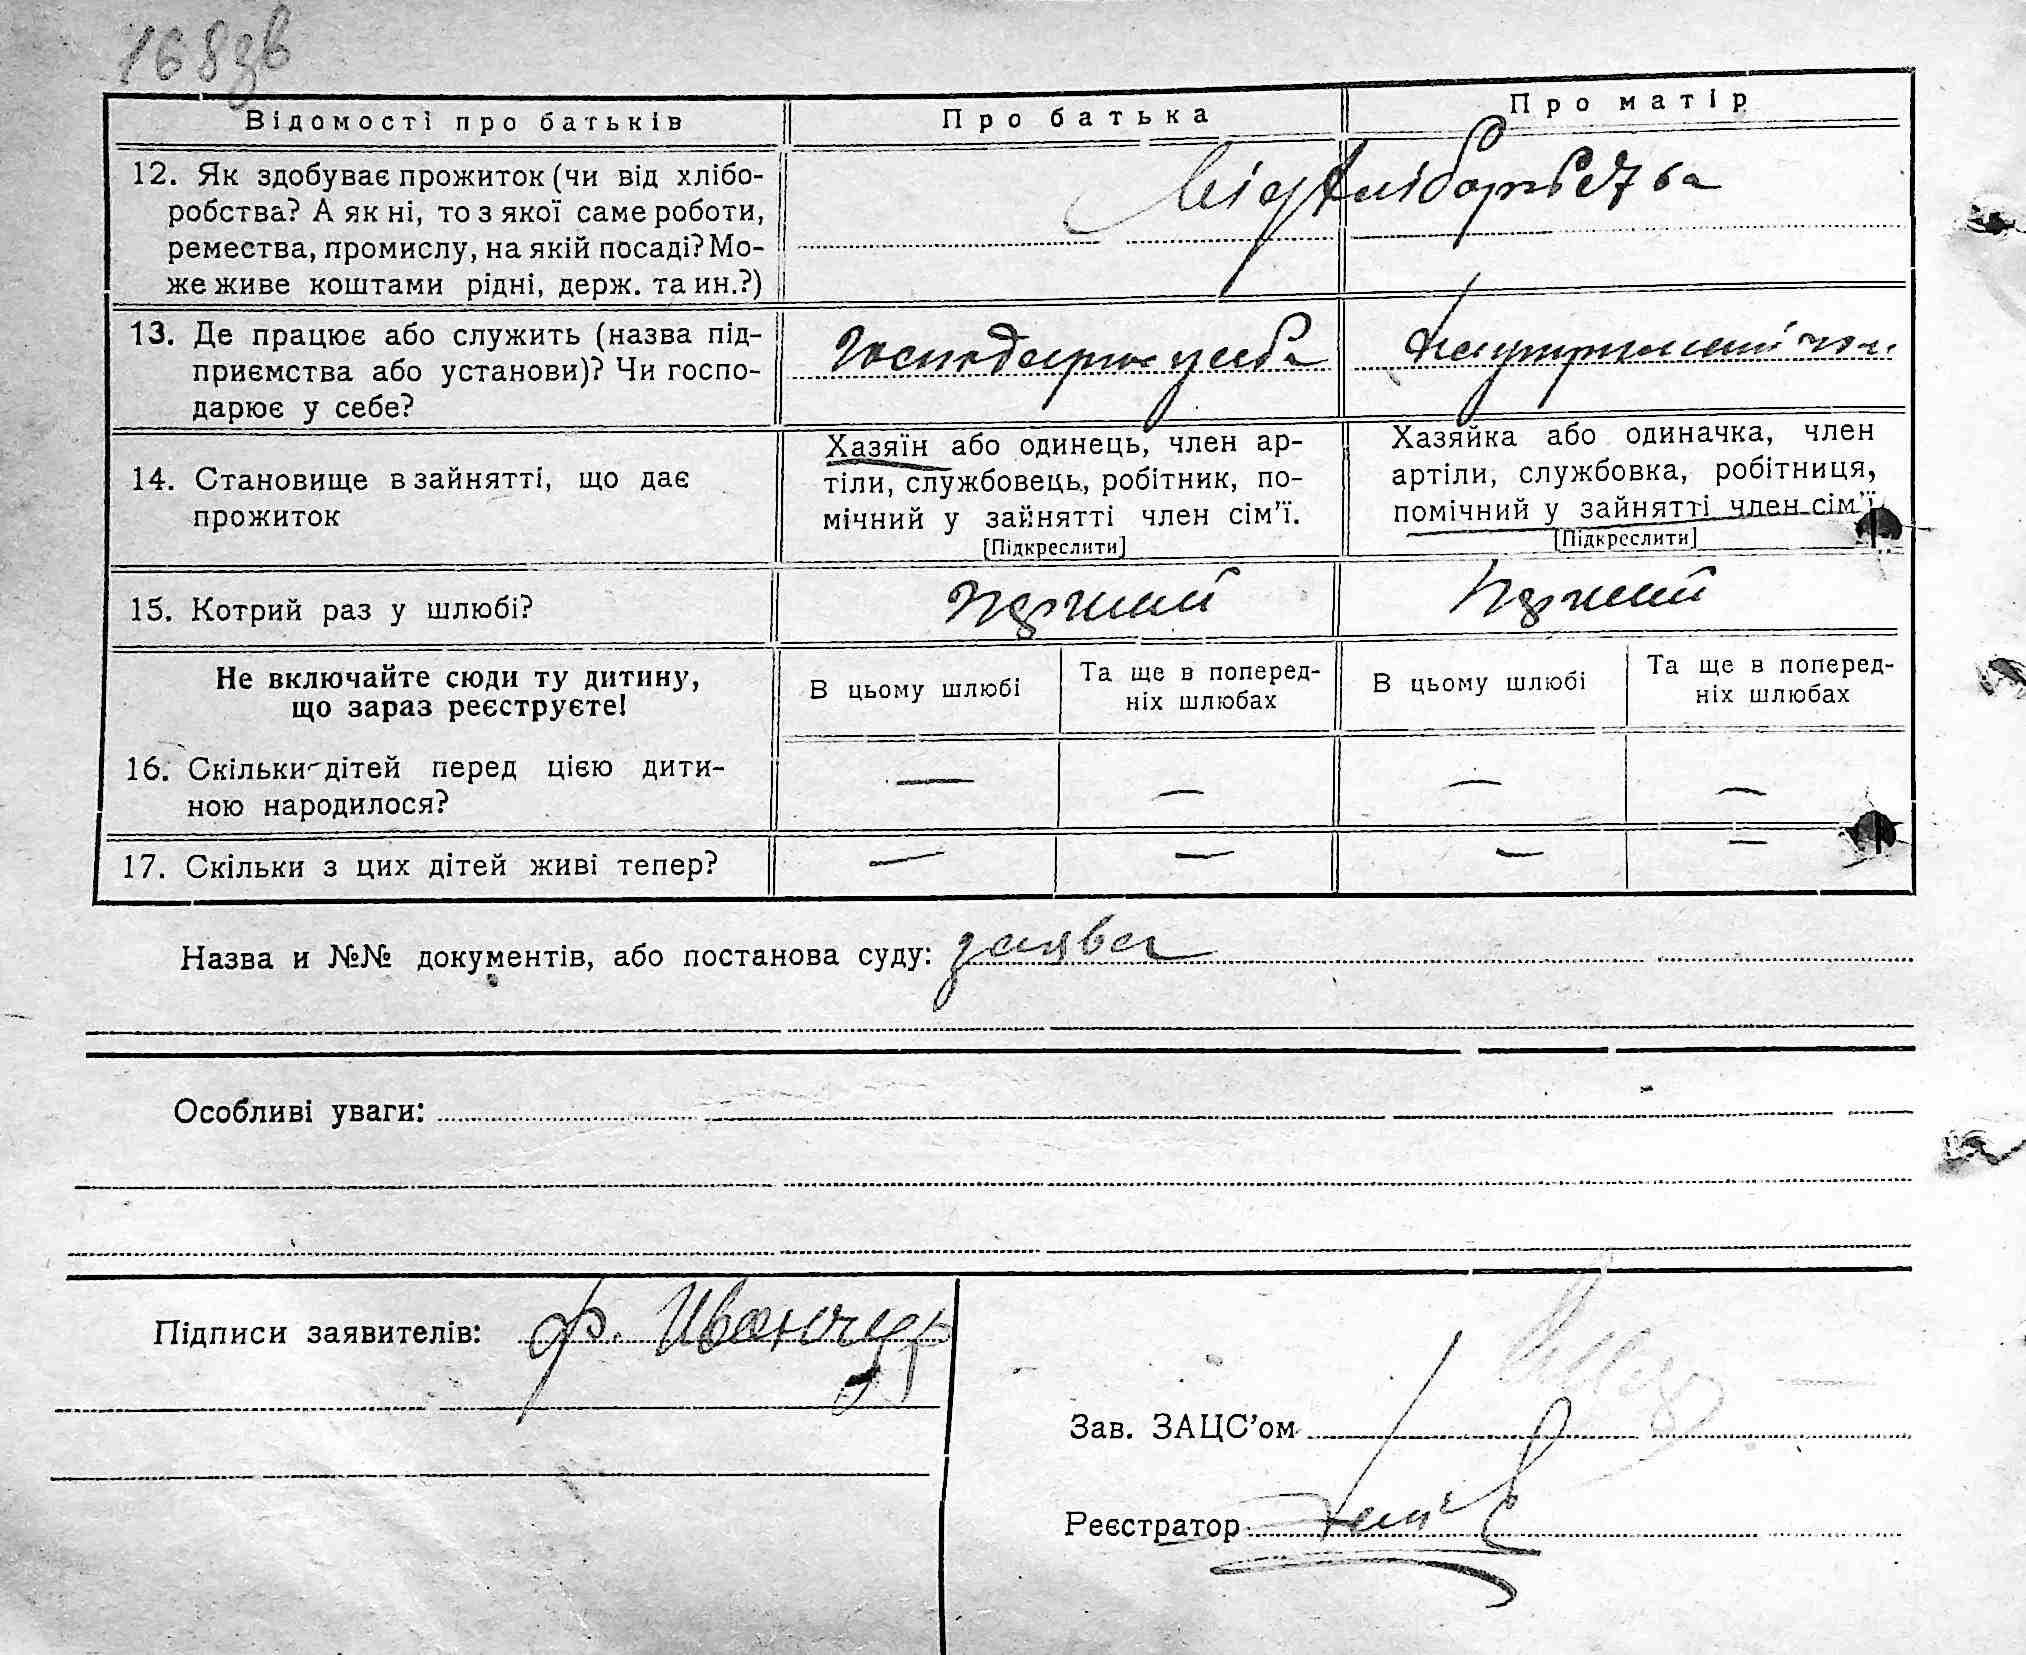 168зв
Відомості про батьків
Про батька
Про матір
12. Як здобуває прожиток (чи від хлібо-
робства? А як ні, то з якої саме роботи,
ремества, промислу, на якій посаді? Мо-
же живе коштами рідні, держ. та ин.?)
Від хліборобства
13. Де працює або служить (назва під-
приємства або установи)? Чи госпо-
дарює у себе?
Господарює у себе
14. Становище в зайнятті, що дає
прожиток
Хазяїн або одинець, член ар-
тіли, службовець, робітник, по-
мічний у зайнятті член сім'ї.
[Підкреслити]
Хазяйка або одиначка, член
артіли, службовка, робітниця,
помічний у зайнятті член сім'ї
[Підкреслити]
15. Котрий раз у шлюбі?
Перший
Перший
Не включайте сюди ту дитину,
що зараз реєструєте!
В цьому шлюбі
Та ще в поперед-
ніх шлюбах
В цьому шлюбі
Та ще в поперед-
ніх шлюбах
16. Скільки дітей перед цією дити-
ною народилося?
— — — —
17. Скільки з цих дітей живі тепер?
— — — —
Назва и №№ документів, або постанова суду: заява
Особливі уваги:
Підписи заявителів: Ф. Иванчур
Зав. ЗАЦС'ом
Реєстратор